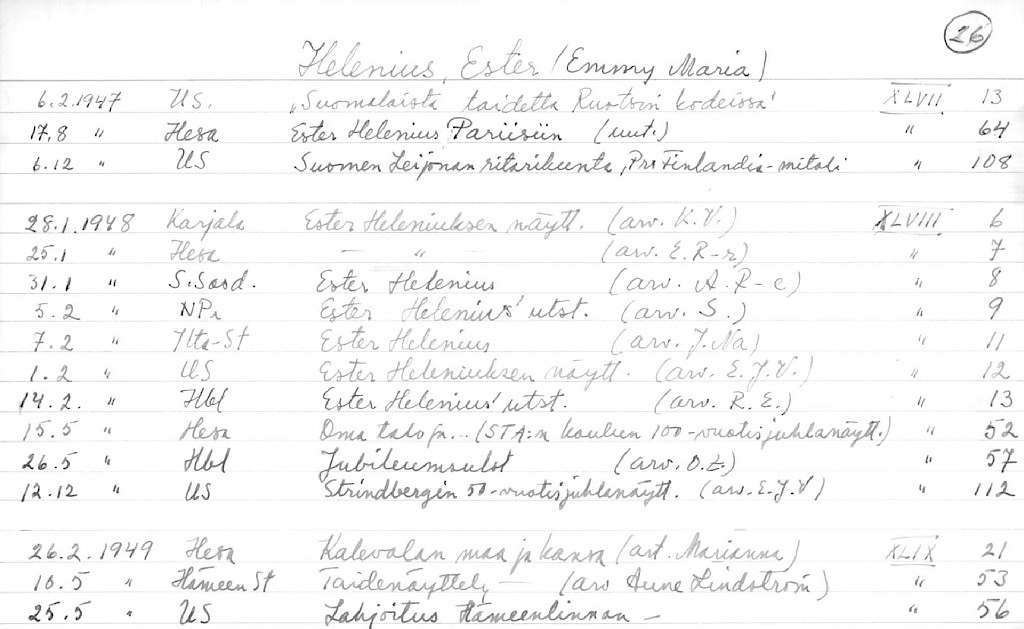 26
Helenius, Ester (Emmy Maria)
6.2.1947 US. "Suomalaista taidetta Ruotsin kodeissa" XLVII 13
17.8 " Hesa Ester Helenius Pariisiin (uut.) " 64
6.12 " US Suomen Leijonan ritarikunta, Pro Finlandia-mitali " 108
28.1.1948 Karjala Ester Heleniuksen näytt. (arv. K.V.) XLVIII 6
25.1 " Hesa — " — (arv. E.R-r) " 7
31.1 " S.Sosd. Ester Helenius (arv. A.R-e) " 8
5.2 " NPr Ester Helenius' utst. (arv. S.) " 9
7.2 " Ilta-St Ester Helenius (arv. J.Na) " 11
1.2 " US Ester Heleniuksen näytt. (arv. E.J.V.) " 12
14.2. " Hbl Ester Helenius' utst. (arv. R.E.) " 13
15.5 " Hesa Oma talo ja... (STA:n koulun 100-vuotisjuhlanäytt.) " 52
26.5 " Hbl Jubileumsutst (arv. O.Z.) " 57
12.12 " US Strindbergin 50-vuotisjuhlanäytt. (arv. E.J.V) " 112
26.2.1949 Hesa Kalevalan maa ja kansa (art. Marianna) XLIX 21
10.5 " Hämeen St Taidenäyttely — (arv Aune Lindström) " 53
25.5 " US Lahjoitus Hämeenlinnan — " 56